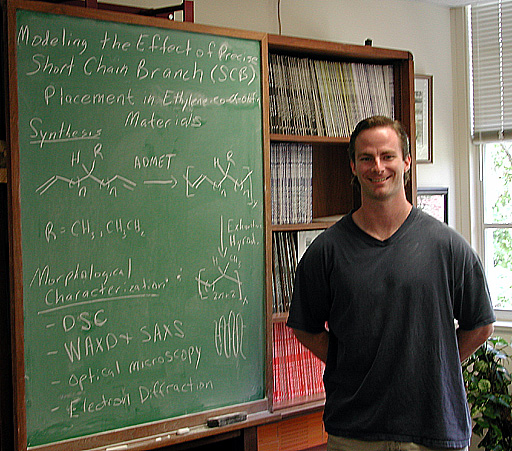 Modeling the Effect of Precise
Short Chain Branch (SCB)
Placement in Ethylene-co-α-olefin
Materials
Synthesis
H R
ADMET
H R
n n
n n
y
R = CH3, CH2CH3
Exhaustive
Hydrod.
Morphological
Characterization:
2n+2
- DSC
- WAXD + SAXS
- Optical microscopy
- Electron Diffraction